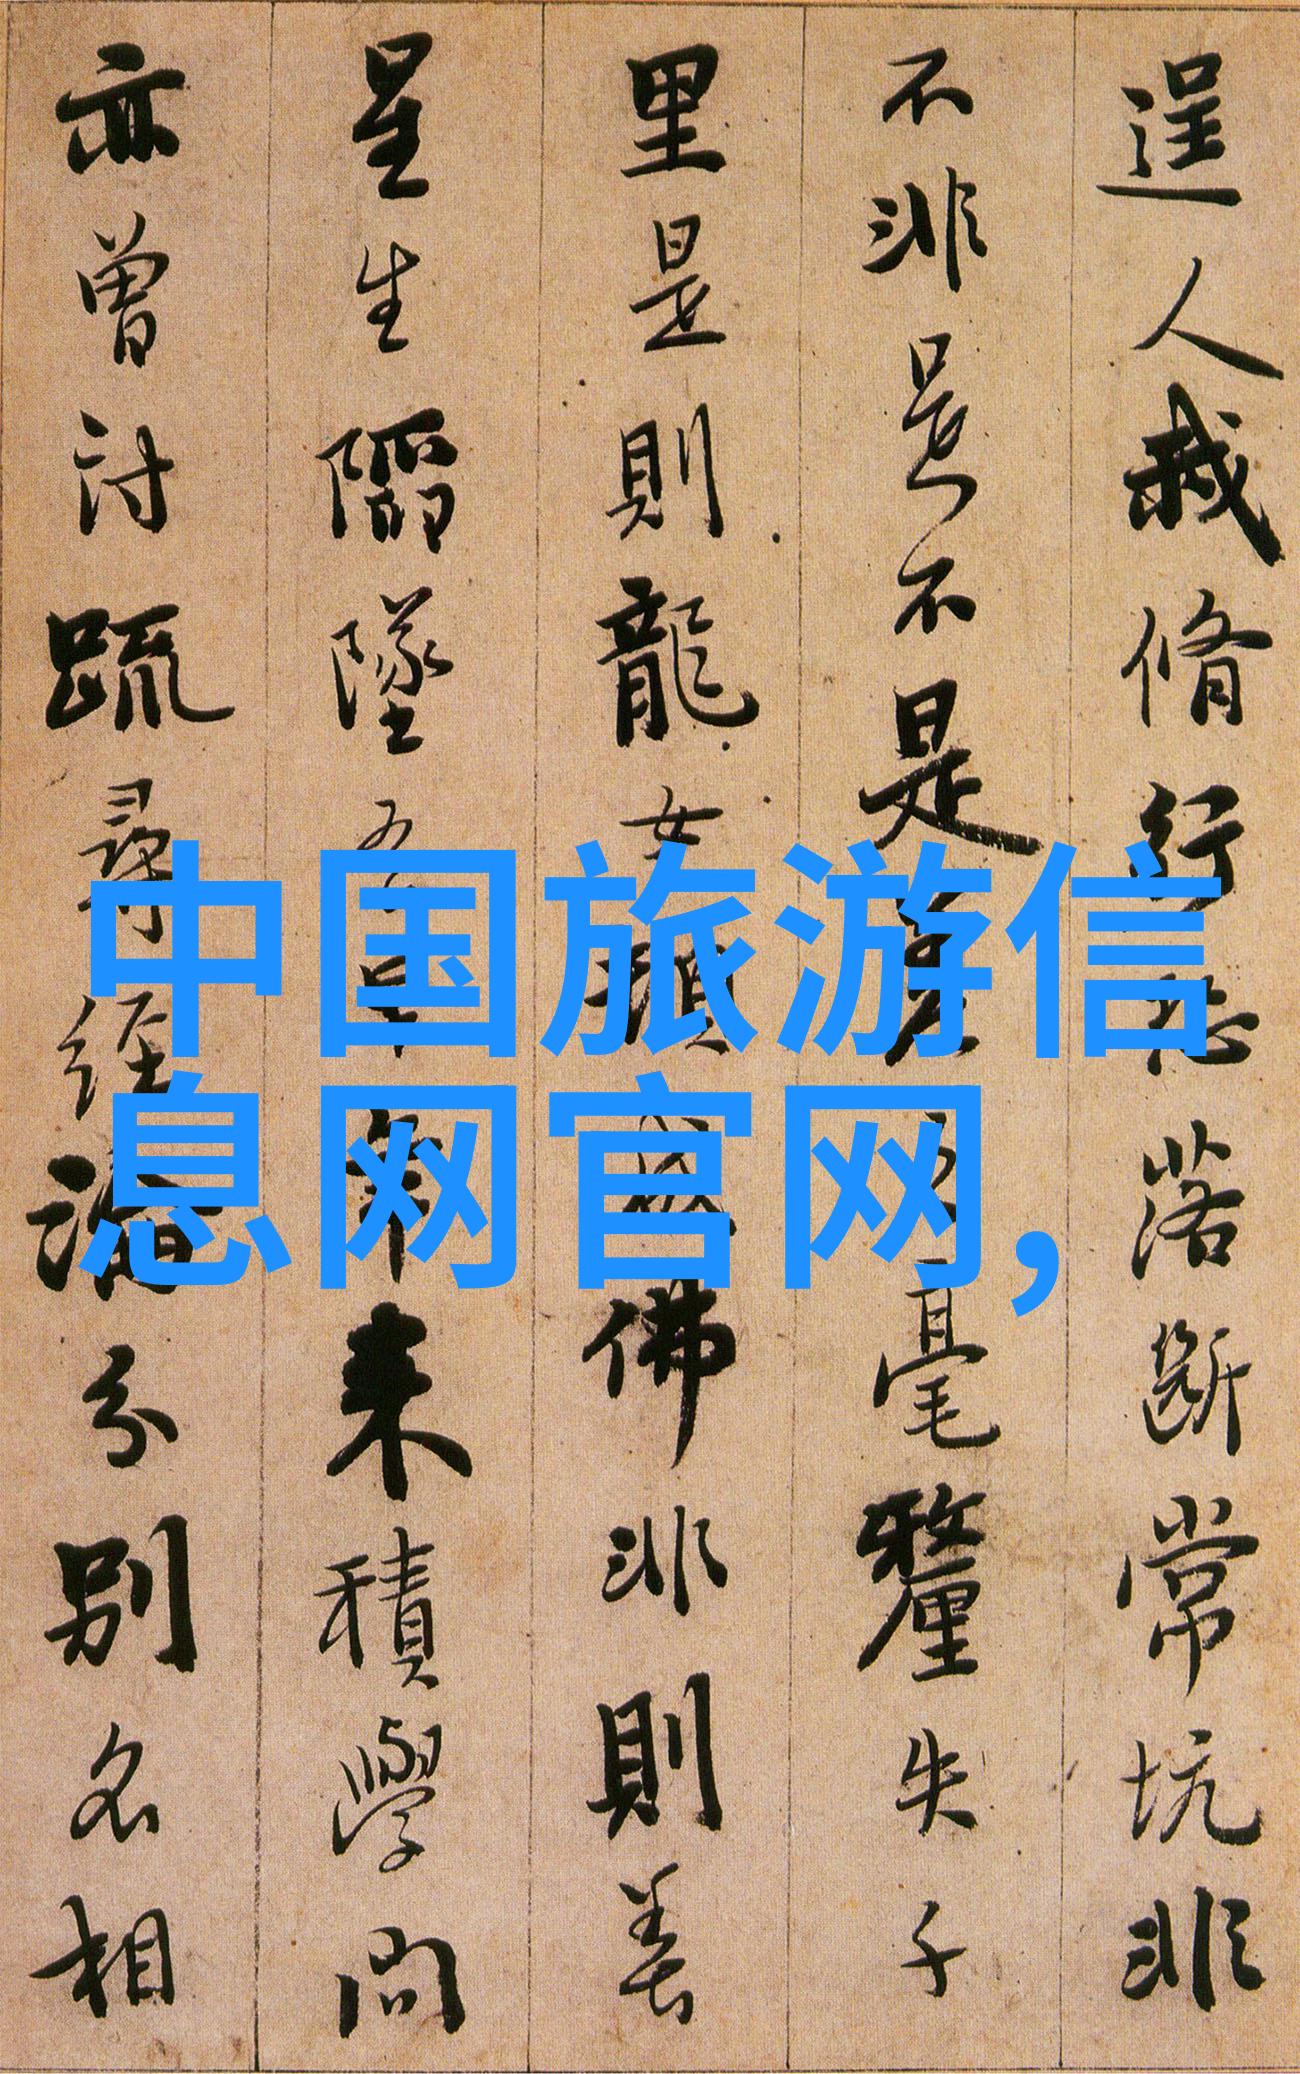 逞人我脩行恐落斷常坑非
不非是不是毫釐失千
里是則龍女頓成佛非則善
星生陷墜年來積學問
亦曾討疏尋經論分別名相
中国旅游信
息网官网,